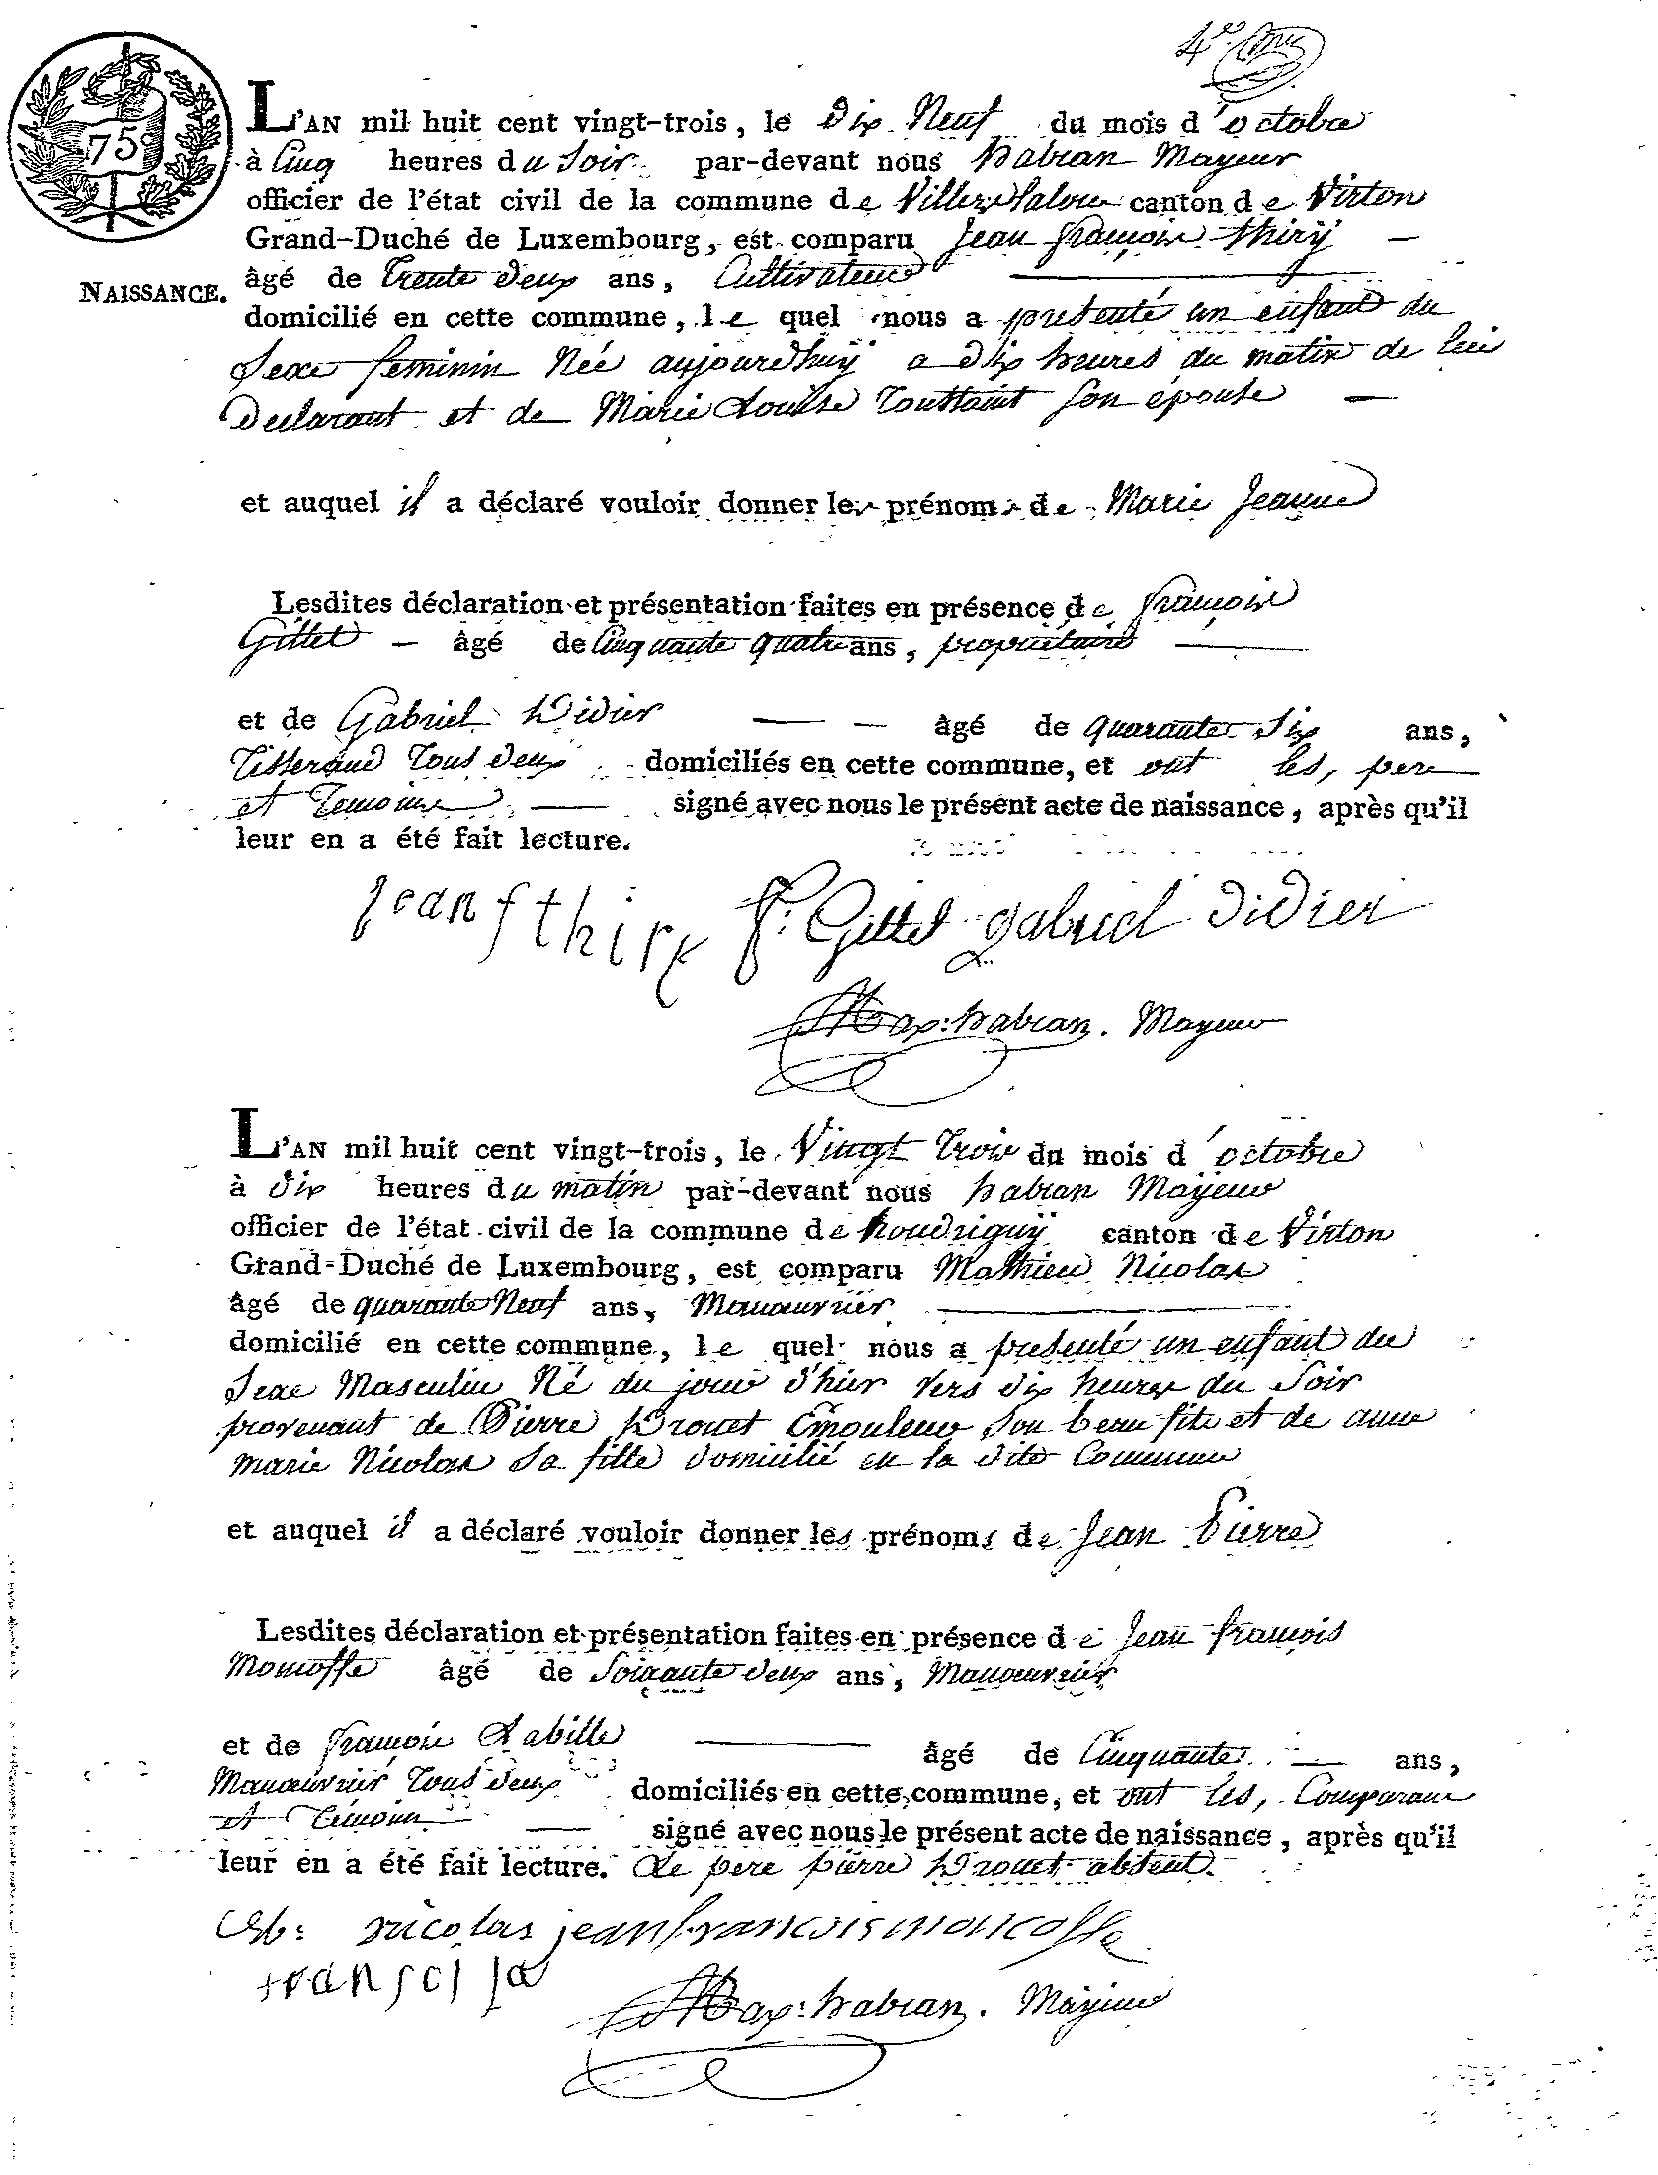 4e
75
L'AN mil huit cent vingt-trois, le Dix Neuf du mois d'octobre
à Cinq heures du Soir par-devant nous habran Mayeur
officier de l'état civil de la commune de Villers canton de Virton
Grand-Duché de Luxembourg, est comparu Jean françois thirÿ
NAISSANCE.
âgé de trente deux ans, Cultivateur
domicilié en cette commune, le quel nous a presenté un enfant du
Sexe feminin Née aujourdhuÿ a dix heures du matin de lui
Declarant et de Marie Louise Toussaint son épouse
et auquel il a déclaré vouloir donner les prénoms de Marie Jeanne
Lesdites déclaration et présentation faites en présence de françois
Gillet âgé de Cinquante quatre ans, proprietaire
et de Gabriel Didier âgé de quarante Six ans,
Tisserand Tous deux domiciliés en cette commune, et ont les, pere
et Temoins signé avec nous le présent acte de naissance, après qu'il
leur en a été fait lecture.
jean f thiry f: Gillet gabriel didier
Max: habran. Mayeur
L'AN mil huit cent vingt-trois, le Vingt Trois du mois d'octobre
à dix heures du matin par-devant nous habran Mayeur
officier de l'état civil de la commune de houdriguÿ canton de Virton
Grand-Duché de Luxembourg, est comparu Mathieu Nicolas
âgé de quarante Neuf ans, Manœuvrier
domicilié en cette commune, le quel nous a presenté un enfant du
Sexe Masculin Né du jour d'hier vers dix heures du Soir
provenant de Pierre Drouet Emouleur son beau fils et de anne
marie Nicolas sa fille domicilié en la dite Commune
et auquel il a déclaré vouloir donner les prénoms de Jean Pierre
Lesdites déclaration et présentation faites en présence de Jean françois
Moncosse âgé de Soixante deux ans, Manœuvrier
et de françois Labille âgé de Cinquante ans,
Manœuvrier Tous deux domiciliés en cette commune, et ont les, Comparant
et Témoins signé avec nous le présent acte de naissance, après qu'il
leur en a été fait lecture. Le pere pierre Drouet absent.
nicolas jean francois moncosse
Max: habran. Mayeur